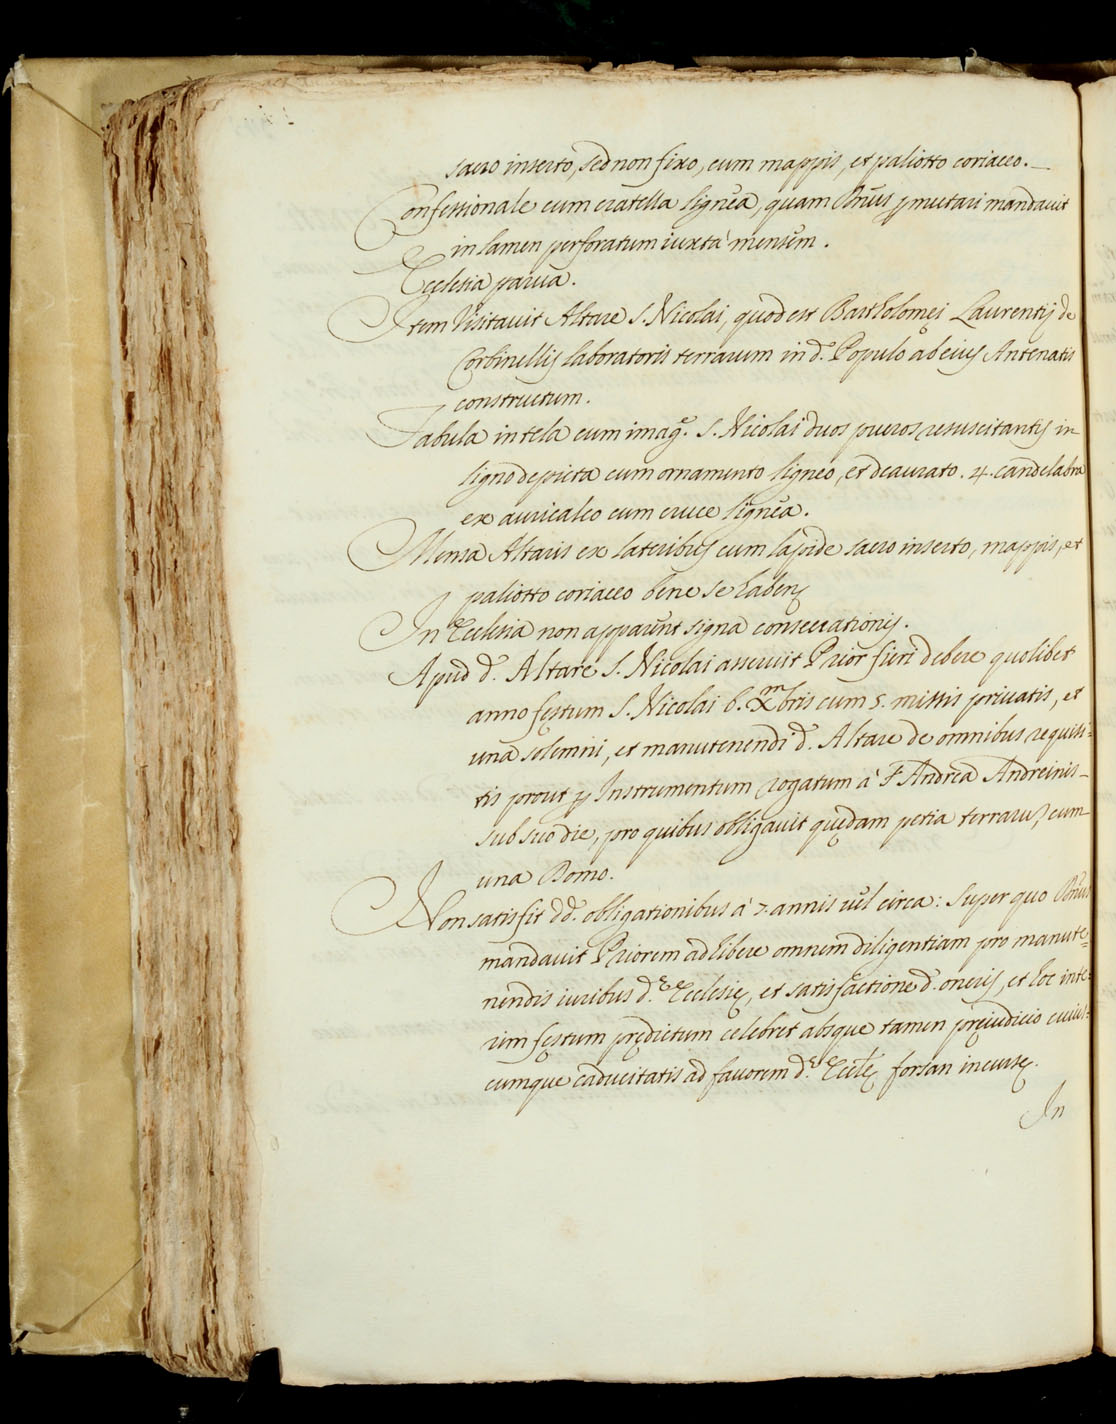 sacro inserto, sed non fixo, cum mappis, et paliotto coriaceo.
Confessionale cum cratella lignea, quam Dn̄us ꝑmutari mandavit
in lamen perforatum iuxtà mensem.
Ecclesia parua.
Item Visitauit Altare S. Nicolai, quod est Bartholomęi Laurentij de
Corbinellis laboratoris terrarum in d.º Populo ab eius Antenatis
constructum.
Tabula in tela cum imag.e S. Nicolai duos pueros resuscitantis in
ligno depicta cum ornamento ligneo, et deaurato. 4. candelabra
ex auricalco cum cruce lignea.
Mensa Altaris ex lateribus cum lapide sacro inserto, mappis, et
paliotto coriaceo bene se habens
In Ecclesia non apparent signa consecrationis.
Apud d. Altare S. Nicolai asseruit Prior fieri debere quolibet
anno festum S. Nicolai 6. Xm̄bris cum 5. missis priuatis, et
una solemni, et manutenendi d. Altare de omnibus requisi=
tis prout ꝑ Instrumentum rogatum à F Andrea Andreinis
sub suo die, pro quibus obligauit quędam petia terrarū, cum
una Domo.
Non satisfit dd. obligationibus à 7. annis uel circa: Super quo Dn̄us
mandauit Priorem adhibere omnem diligentiam pro manute=
nendis iuribus d.ę Ecclesię, et satisfactione d. oneris, et hoc inte=
rim festum prędictum celebret absque tamen pręiudicio cuius=
cumque caducitatis ad fauorem d.ę Eccłę forsan incursę.
In